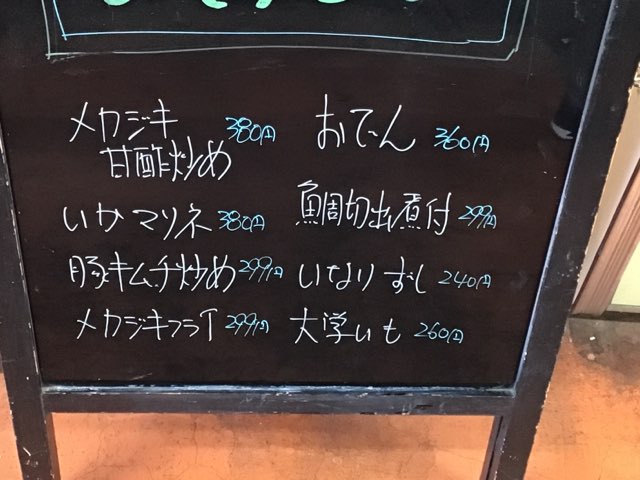 メカジキ
甘酢炒め 380円
いかマリネ 380円
豚キムチ炒め 299円
メカジキフライ 299円
おでん 360円
鯛切出煮付 299円
いなりずし 240円
大学いも 260円